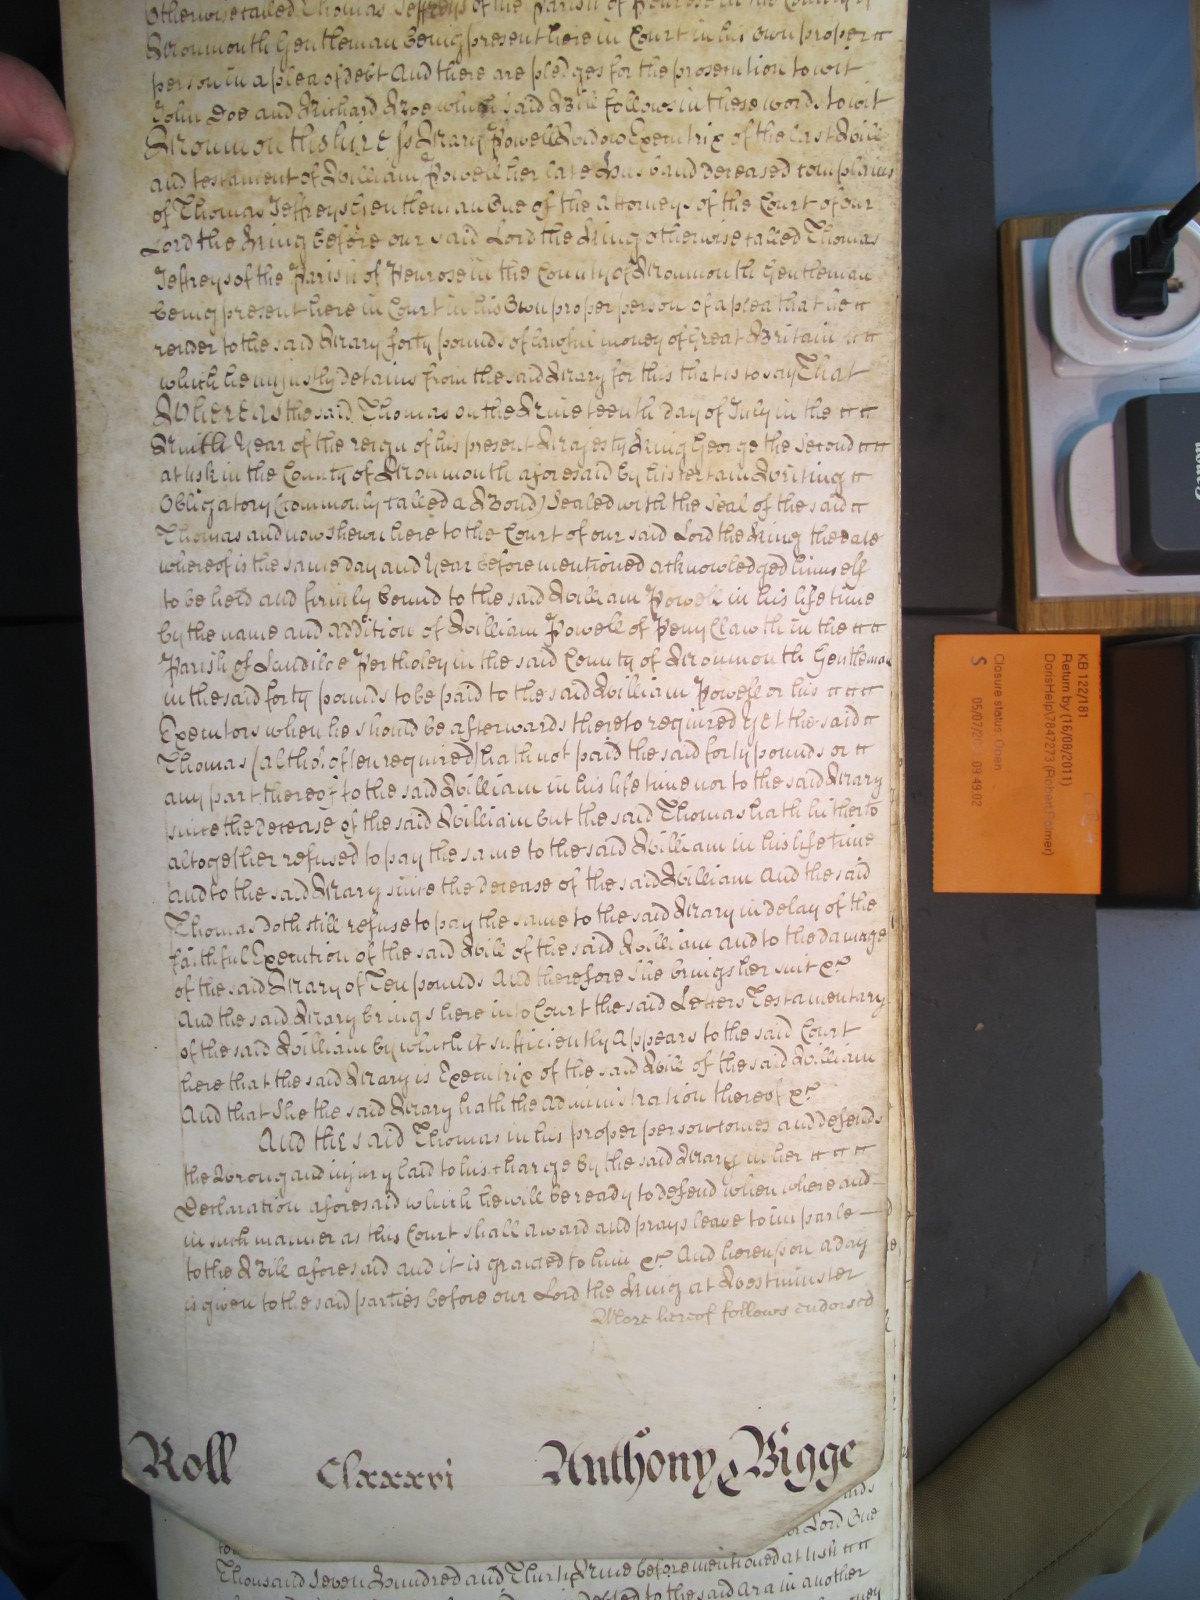 Otherwise called Thomas Jeffreys of the Parish of Penrose in the County of
Monmouth Gentleman being present here in Court in his Own proper
person in a plea of debt And there are pledges for the prosecution to wit
John Doe and Richard Roe which said Bill follows in these words to wit
Monmouthshire ss Mary Powell Widow Executrix of the last Will
and testament of William Powell her late Husband deceased complains
of Thomas Jeffreys Gentleman One of the Attorneys of the Court of our
Lord the King before our said Lord the King otherwise called Thomas
Jeffreys of the Parish of Penrose in the County of Monmouth Gentleman
being present here in Court in his Own proper person of a plea that he
render to the said Mary forty pounds of lawful money of Great Britain
which he unjustly detains from the said Mary for this that is to say That
Whereas the said Thomas on the Nineteenth day of July in the
Ninth Year of the reign of his present Majesty King George the Second
at Usk in the County of Monmouth aforesaid by his certain Writing
Obligatory (commonly called a Bond) Sealed with the Seal of the said
Thomas and now shewn here to the Court of our said Lord the King the date
whereof is the same day and Year before mentioned acknowledged himself
to be held and firmly bound to the said William Powell in his life time
by the name and addition of William Powell of Penyclawth in the
Parish of Landiloe Pertholey in the said County of Monmouth Gentleman
in the said forty pounds to be paid to the said William Powell or his
Executors when he should be afterwards thereto required Yet the said
Thomas (altho. often required) hath not paid the said forty pounds or
any part thereof to the said William in his life time nor to the said Mary
since the decease of the said William but the said Thomas hath hitherto
altogether refused to pay the same to the said William in his life time
and to the said Mary since the decease of the said William And the said
Thomas doth still refuse to pay the same to the said Mary in delay of the
faithful Execution of the said Will of the said William and to the damage
of the said Mary of Ten pounds And therefore She brings her suit &c
And the said Mary brings here into Court the said Letters Testamentary
of the said William by which it sufficiently Appears to the said Court
here that the said Mary is Executrix of the said Will of the said William
And that She the said Mary hath the Administration thereof &c
And the said Thomas in his proper person comes and defends
the Wrong and injury laid to his charge by the said Mary in her
Declaration aforesaid which he will be ready to defend when where and
in such manner as this Court shall award and prays leave to imparle
to the Bill aforesaid and it is granted to him &c And hereupon a day
is given to the said parties before our Lord the King at Westminster
More hereof follows endorsed
Roll Clxxxvi Anthony Bigge
Lord One
Thousand Seven Hundred and Thirty Nine before mentioned at Usk
to the said Ara in another
KB 122/181
Return by (16/08/2011)
DorisHelp\7847273 (Robert Palmer)
Closure status: Open
S 05/07/2 09:49:02
Canon